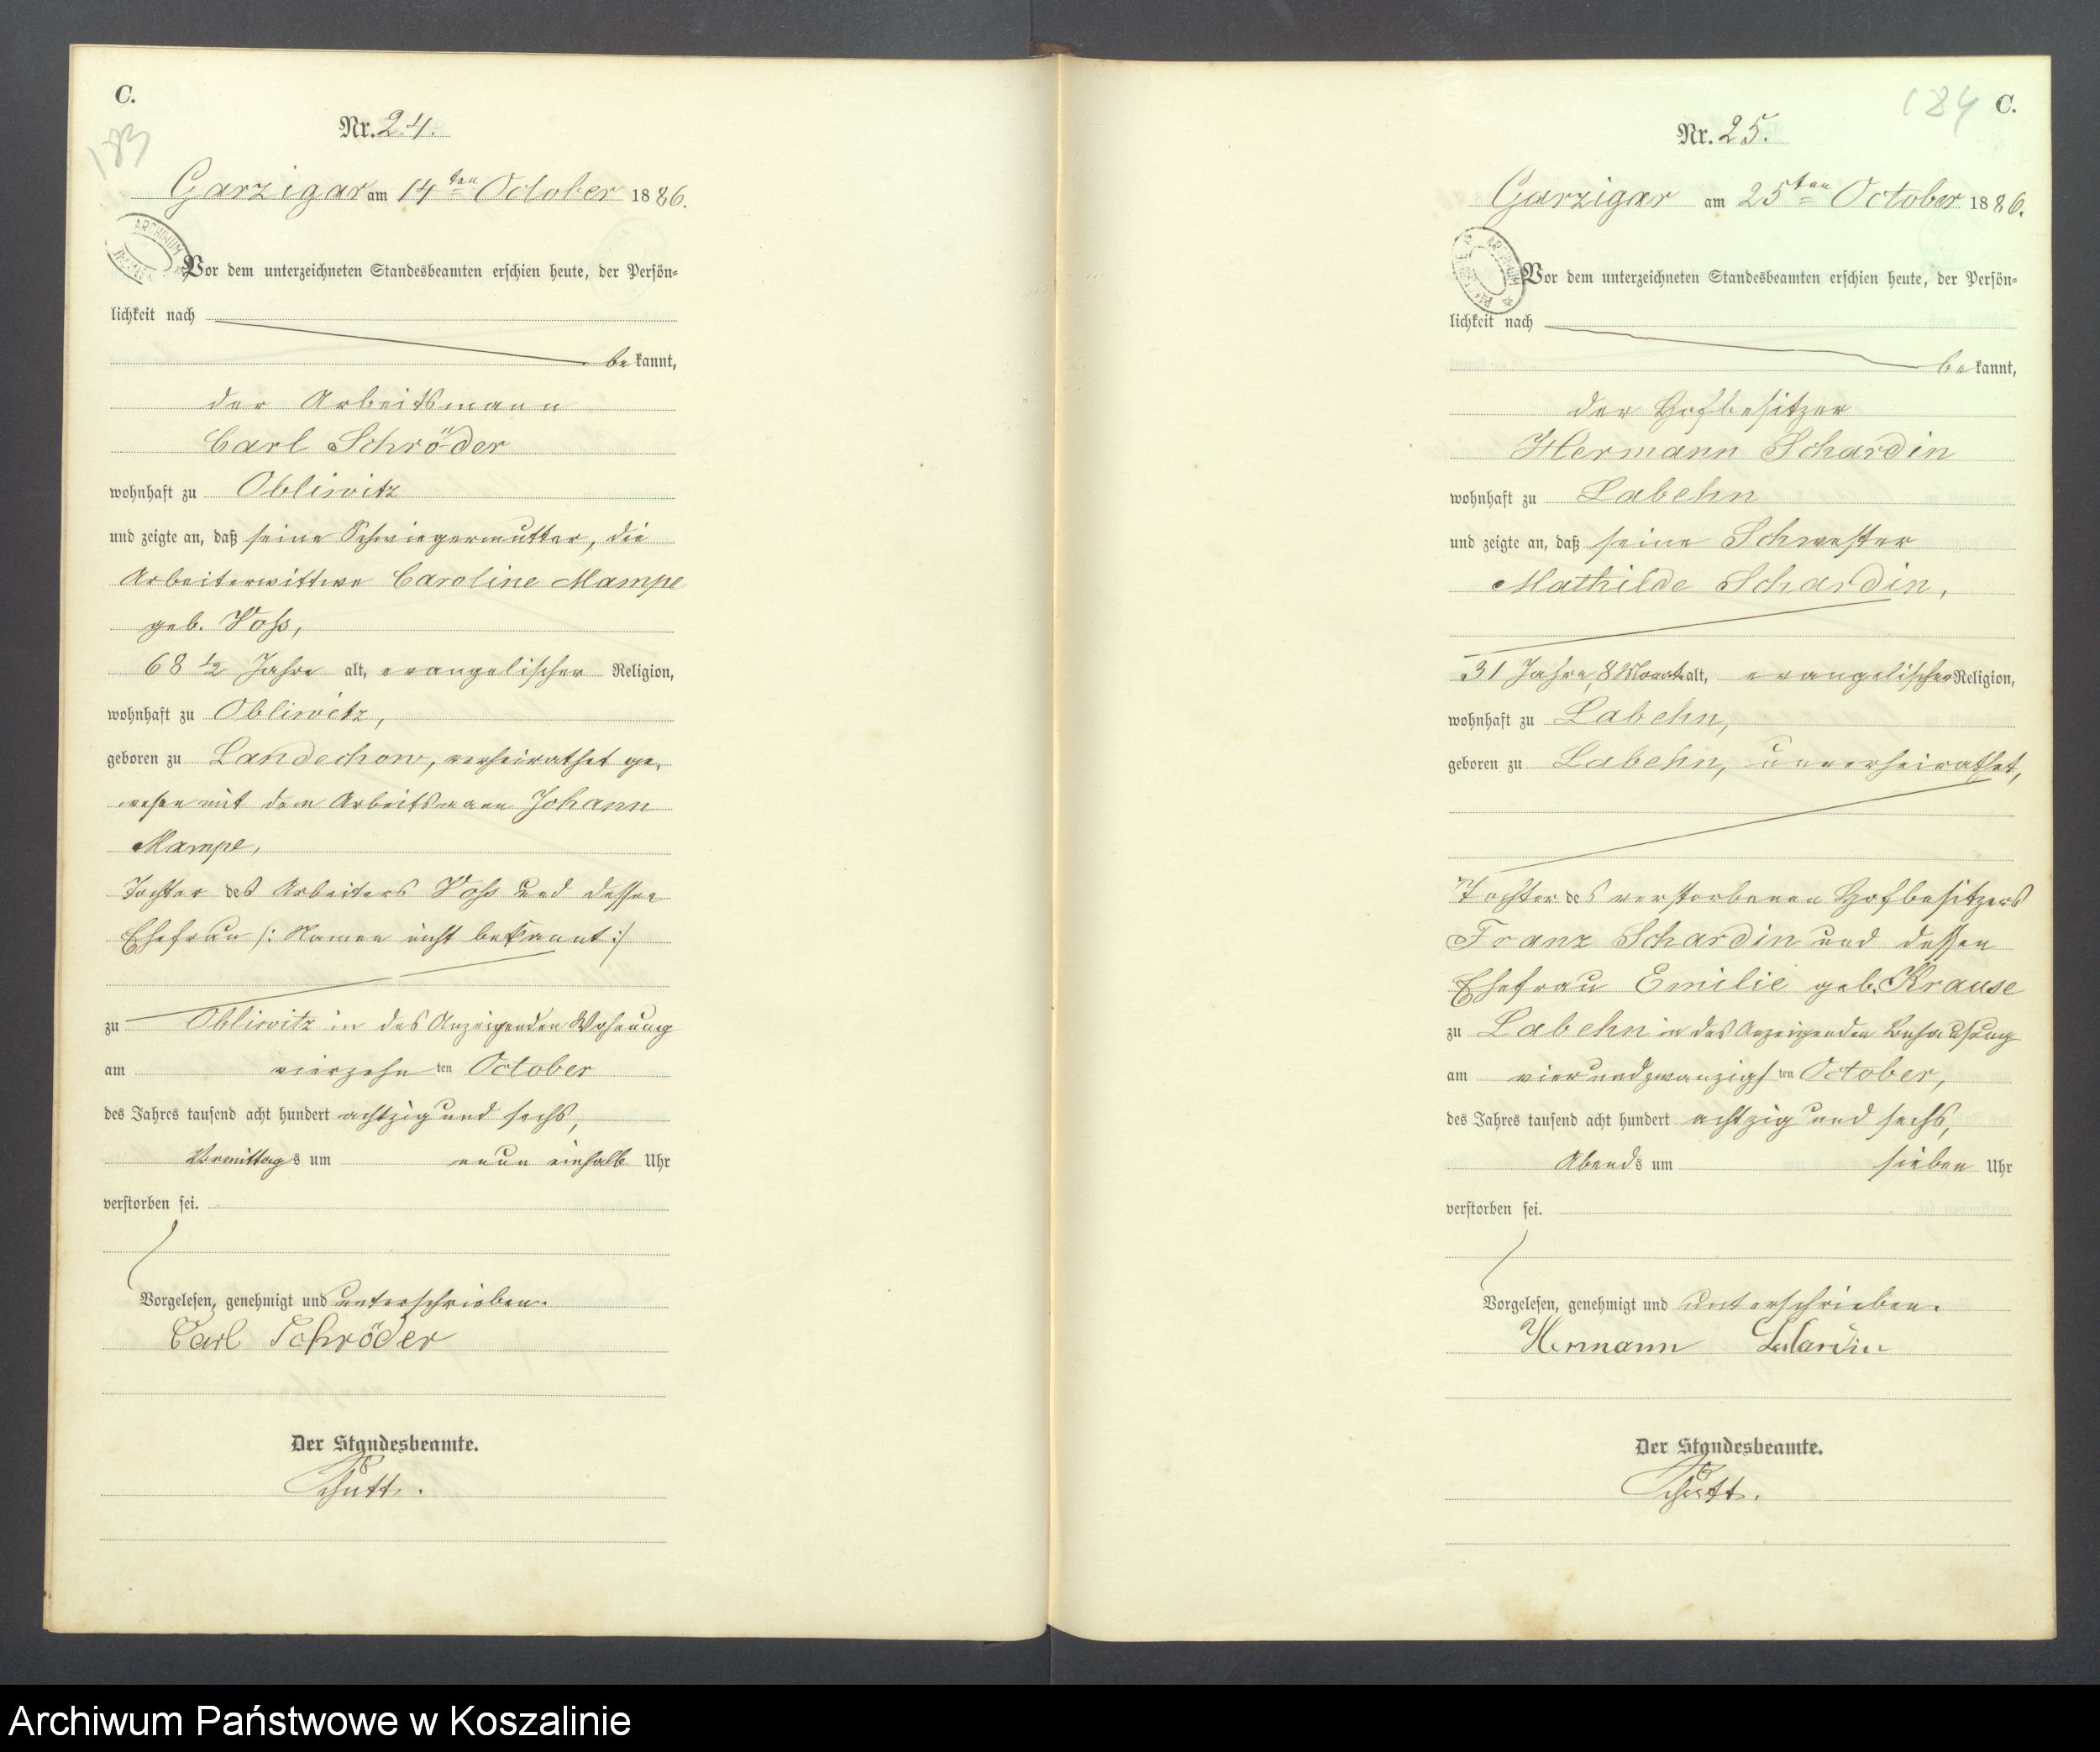 C.
183
Nr. 24.
Garzigar am 14ten October 1886.
ARCHIWUM
Vor dem unterzeichneten Standesbeamten erschien heute, der Persön=
lichkeit nach
bekannt,
der Arbeitsmann
Carl Schröder
wohnhaft zu Obliwitz
und zeigte an, daß seine Schwiegermutter, die
Arbeiterwittwe Caroline Mampe
geb. Voss,
68 1/2 Jahre alt, evangelischer Religion,
wohnhaft zu Obliwitz,
geboren zu Landechow, verheirathet ge-
wesen mit dem Arbeitsmann Johann
Mampe,
Tochter des Arbeiters Voss und dessen
Ehefrau /: Namen nicht bekannt :/
zu Obliwitz in des Anzeigenden Wohnung
am vierzehnten October
des Jahres tausend acht hundert achtzig und sechs,
Vormittags um neun einhalb Uhr
verstorben sei.
Vorgelesen, genehmigt und unterschrieben.
Carl Schröder
Der Standesbeamte.
C.
184
Nr. 25.
Garzigar am 25ten October 1886.
ARCHIWUM
Vor dem unterzeichneten Standesbeamten erschien heute, der Persön=
lichkeit nach
bekannt,
der Hofbesitzer
Hermann Schardin
wohnhaft zu Labehn
und zeigte an, daß seine Schwester
Mathilde Schardin,
31 Jahre, 8 Monat alt, evangelischer Religion,
wohnhaft zu Labehn,
geboren zu Labehn, unverheirathet,
Tochter des verstorbenen Hofbesitzers
Franz Schardin und dessen
Ehefrau Emilie geb. Krause
zu Labehn in des Anzeigenden Behausung
am vierundzwanzigsten October,
des Jahres tausend acht hundert achtzig und sechs,
Abends um sieben Uhr
verstorben sei.
Vorgelesen, genehmigt und unterschrieben.
Hermann Schardin
Der Standesbeamte.
Archiwum Państwowe w Koszalinie